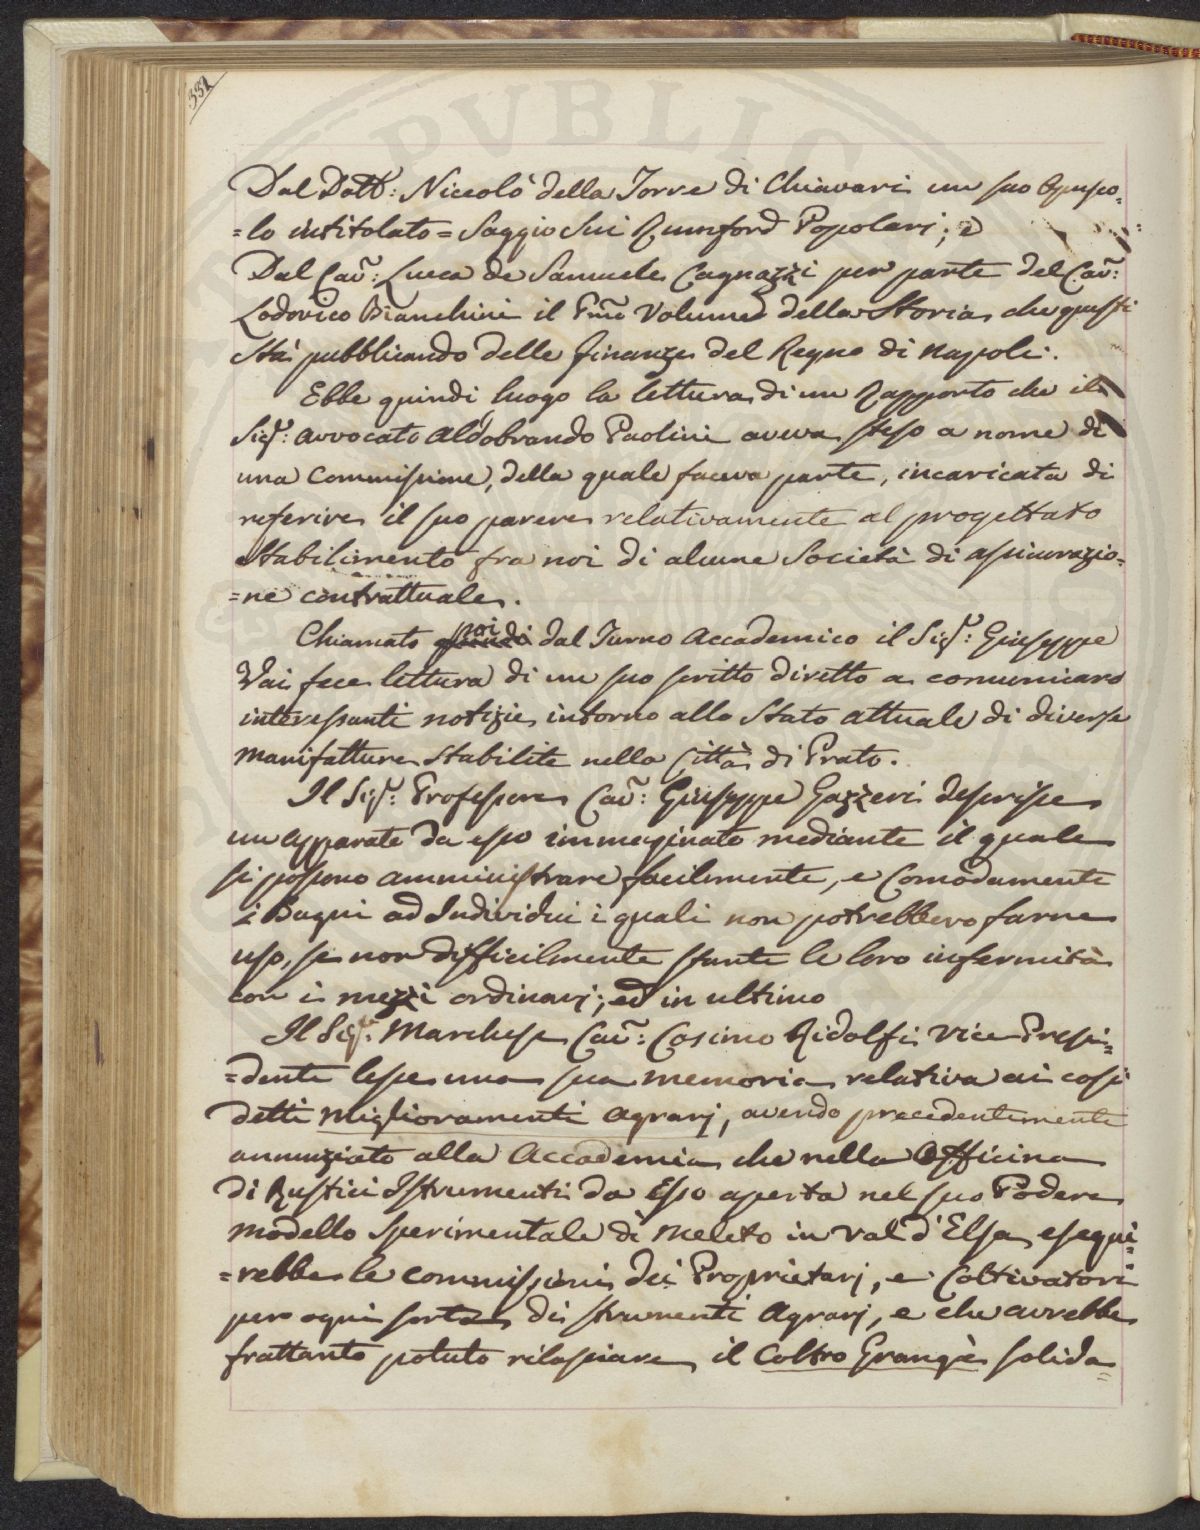 332
Dal Dott: Niccolò della Torre di Chiavari un suo Opusco=
=lo intitolato = Saggio sui Rumford Popolari; e
Dal Cav: Luca de Samuele Cagnazzi per parte del Cav:
Lodovico Bianchini il Pmo Volume della Storia che questi
stà pubblicando delle finanze del Regno di Napoli.
Ebbe quindi luogo la lettura di un Rapporto che il
Sigr: Avvocato Aldobrando Paolini aveva steso a nome di
una Commissione, della quale faceva parte, incaricata di
referire il suo parere relativamente al progettato
Stabilimento fra noi di alcune Società di assicurazio=
=ne contrattuale.
Chiamato poi dal Turno Accademico il Sigr: Giuseppe
Vai fece lettura di un suo scritto diretto a comunicare
interessanti notizie intorno allo Stato attuale di diverse
manifatture stabilite nella Città di Prato.
Il Sigr: Professore Cav: Giuseppe Gazzeri descrisse
un apparato da esso immaginato mediante il quale
si possono amministrare facilmente, e Comodamente
i Bagni ad Individui i quali non potrebbero farne
uso, se non difficilmente stante le loro infermità
con i mezzi ordinarj; ed in ultimo
Il Sigr: Marchese Cav: Cosimo Ridolfi Vice Presi=
=dente lesse una sua memoria relativa ai così
detti Miglioramenti Agrarj, avendo precedentemente
annunziato alla Accademia che nella Officina
di Rustici Istrumenti da Esso aperta nel suo Podere
modello Sperimentale di Meleto in Val d'Elsa esegui=
=rebbe le commissioni dei Proprietarj, e Coltivatori
per ogni sorta di strumenti Agrarj, e che avrebbe
frattanto potuto rilasciare il Coltro Grangè solida=